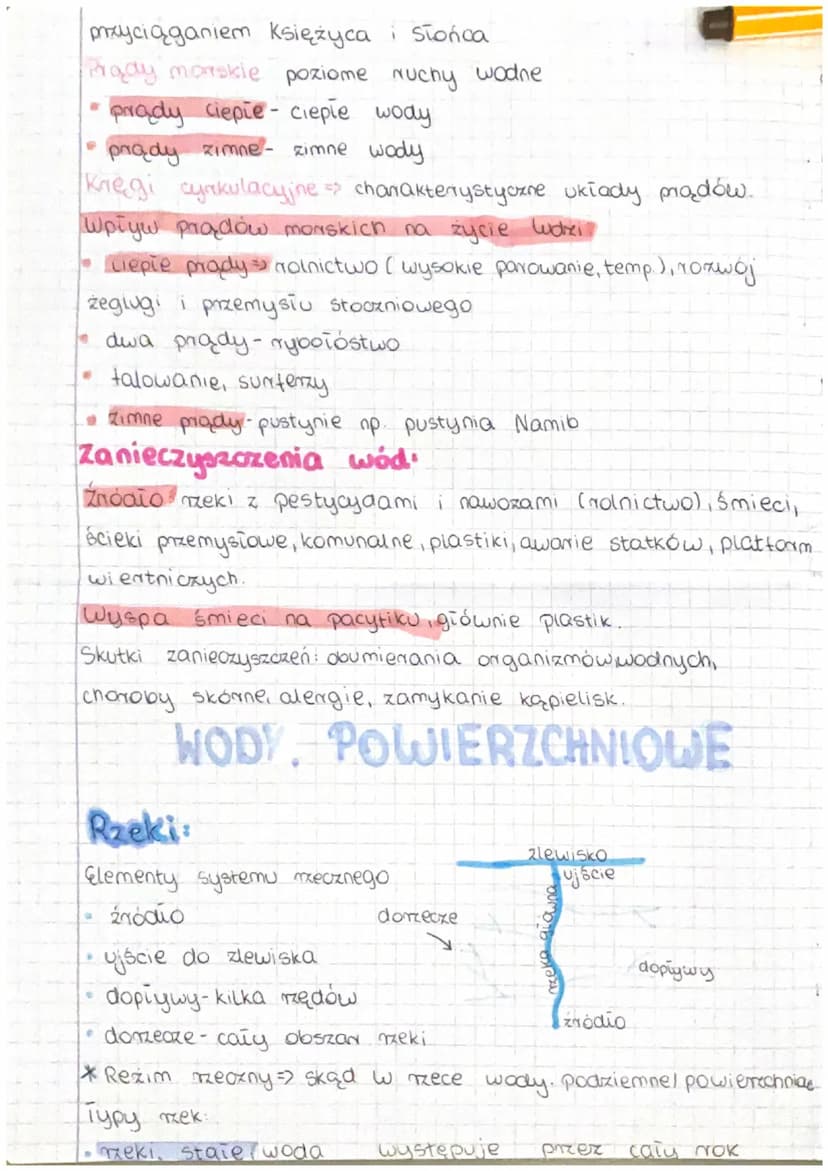 przyciąganiem Księżyca i Słońca
Prądy morskie poziome ruchy wodne
• prądy ciepłe - ciepłe wody
• prądy zimne - zimne wody
Kręgi cyrkulacyjne => charakterystyczne układy prądów.
Wpływ prądów morskich na życie ludzi
• ciepłe prądy => rolnictwo (wysokie parowanie, temp.), rozwój
żeglugi i przemysłu stoczniowego
• dwa prądy - rybołóstwo
• falowanie, surferzy
• zimne prądy - pustynie np. pustynia Namib
Zanieczyszczenia wód:
Źródło: rzeki z pestycydami i nawozami (rolnictwo), śmieci,
ścieki przemysłowe, komunalne, plastiki, awarie statków, platform
wiertniczych.
Wyspa śmieci na pacyfiku, głównie plastik.
Skutki zanieczyszczeń: obumierania organizmów wodnych,
choroby skórne, alergie, zamykanie kąpielisk.
WODY. POWIERZCHNIOWE
Rzeki:
zlewisko
Elementy systemu rzecznego
ujście
• źródło
dorzecze
rzeka główna
• ujście do zlewiska
dopływy
• dopływy - kilka rzędów
źródło
• dorzecze - cały obszar rzeki
* Reżim rzeczny => skąd w rzece wody. podziemne/powierzchniowe
Typy rzek:
• rzeki stałe / woda występuje przez cały rok